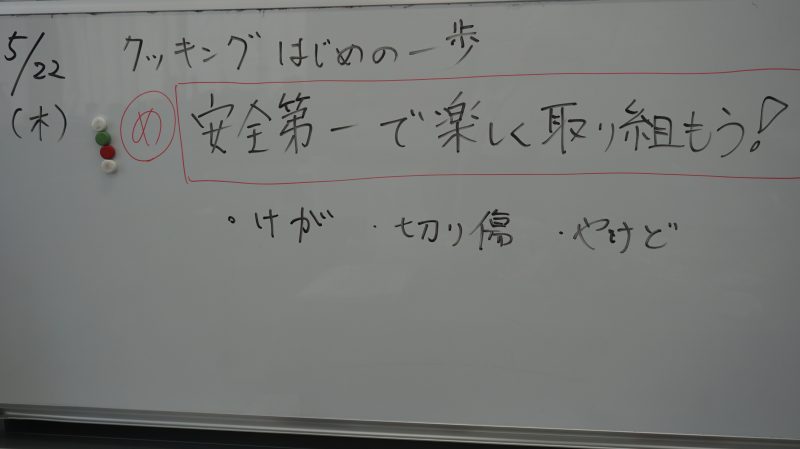 5/22 クッキングはじめの一歩
(木) め 安全第一で楽しく取り組もう!
・けが ・切り傷 ・やけど